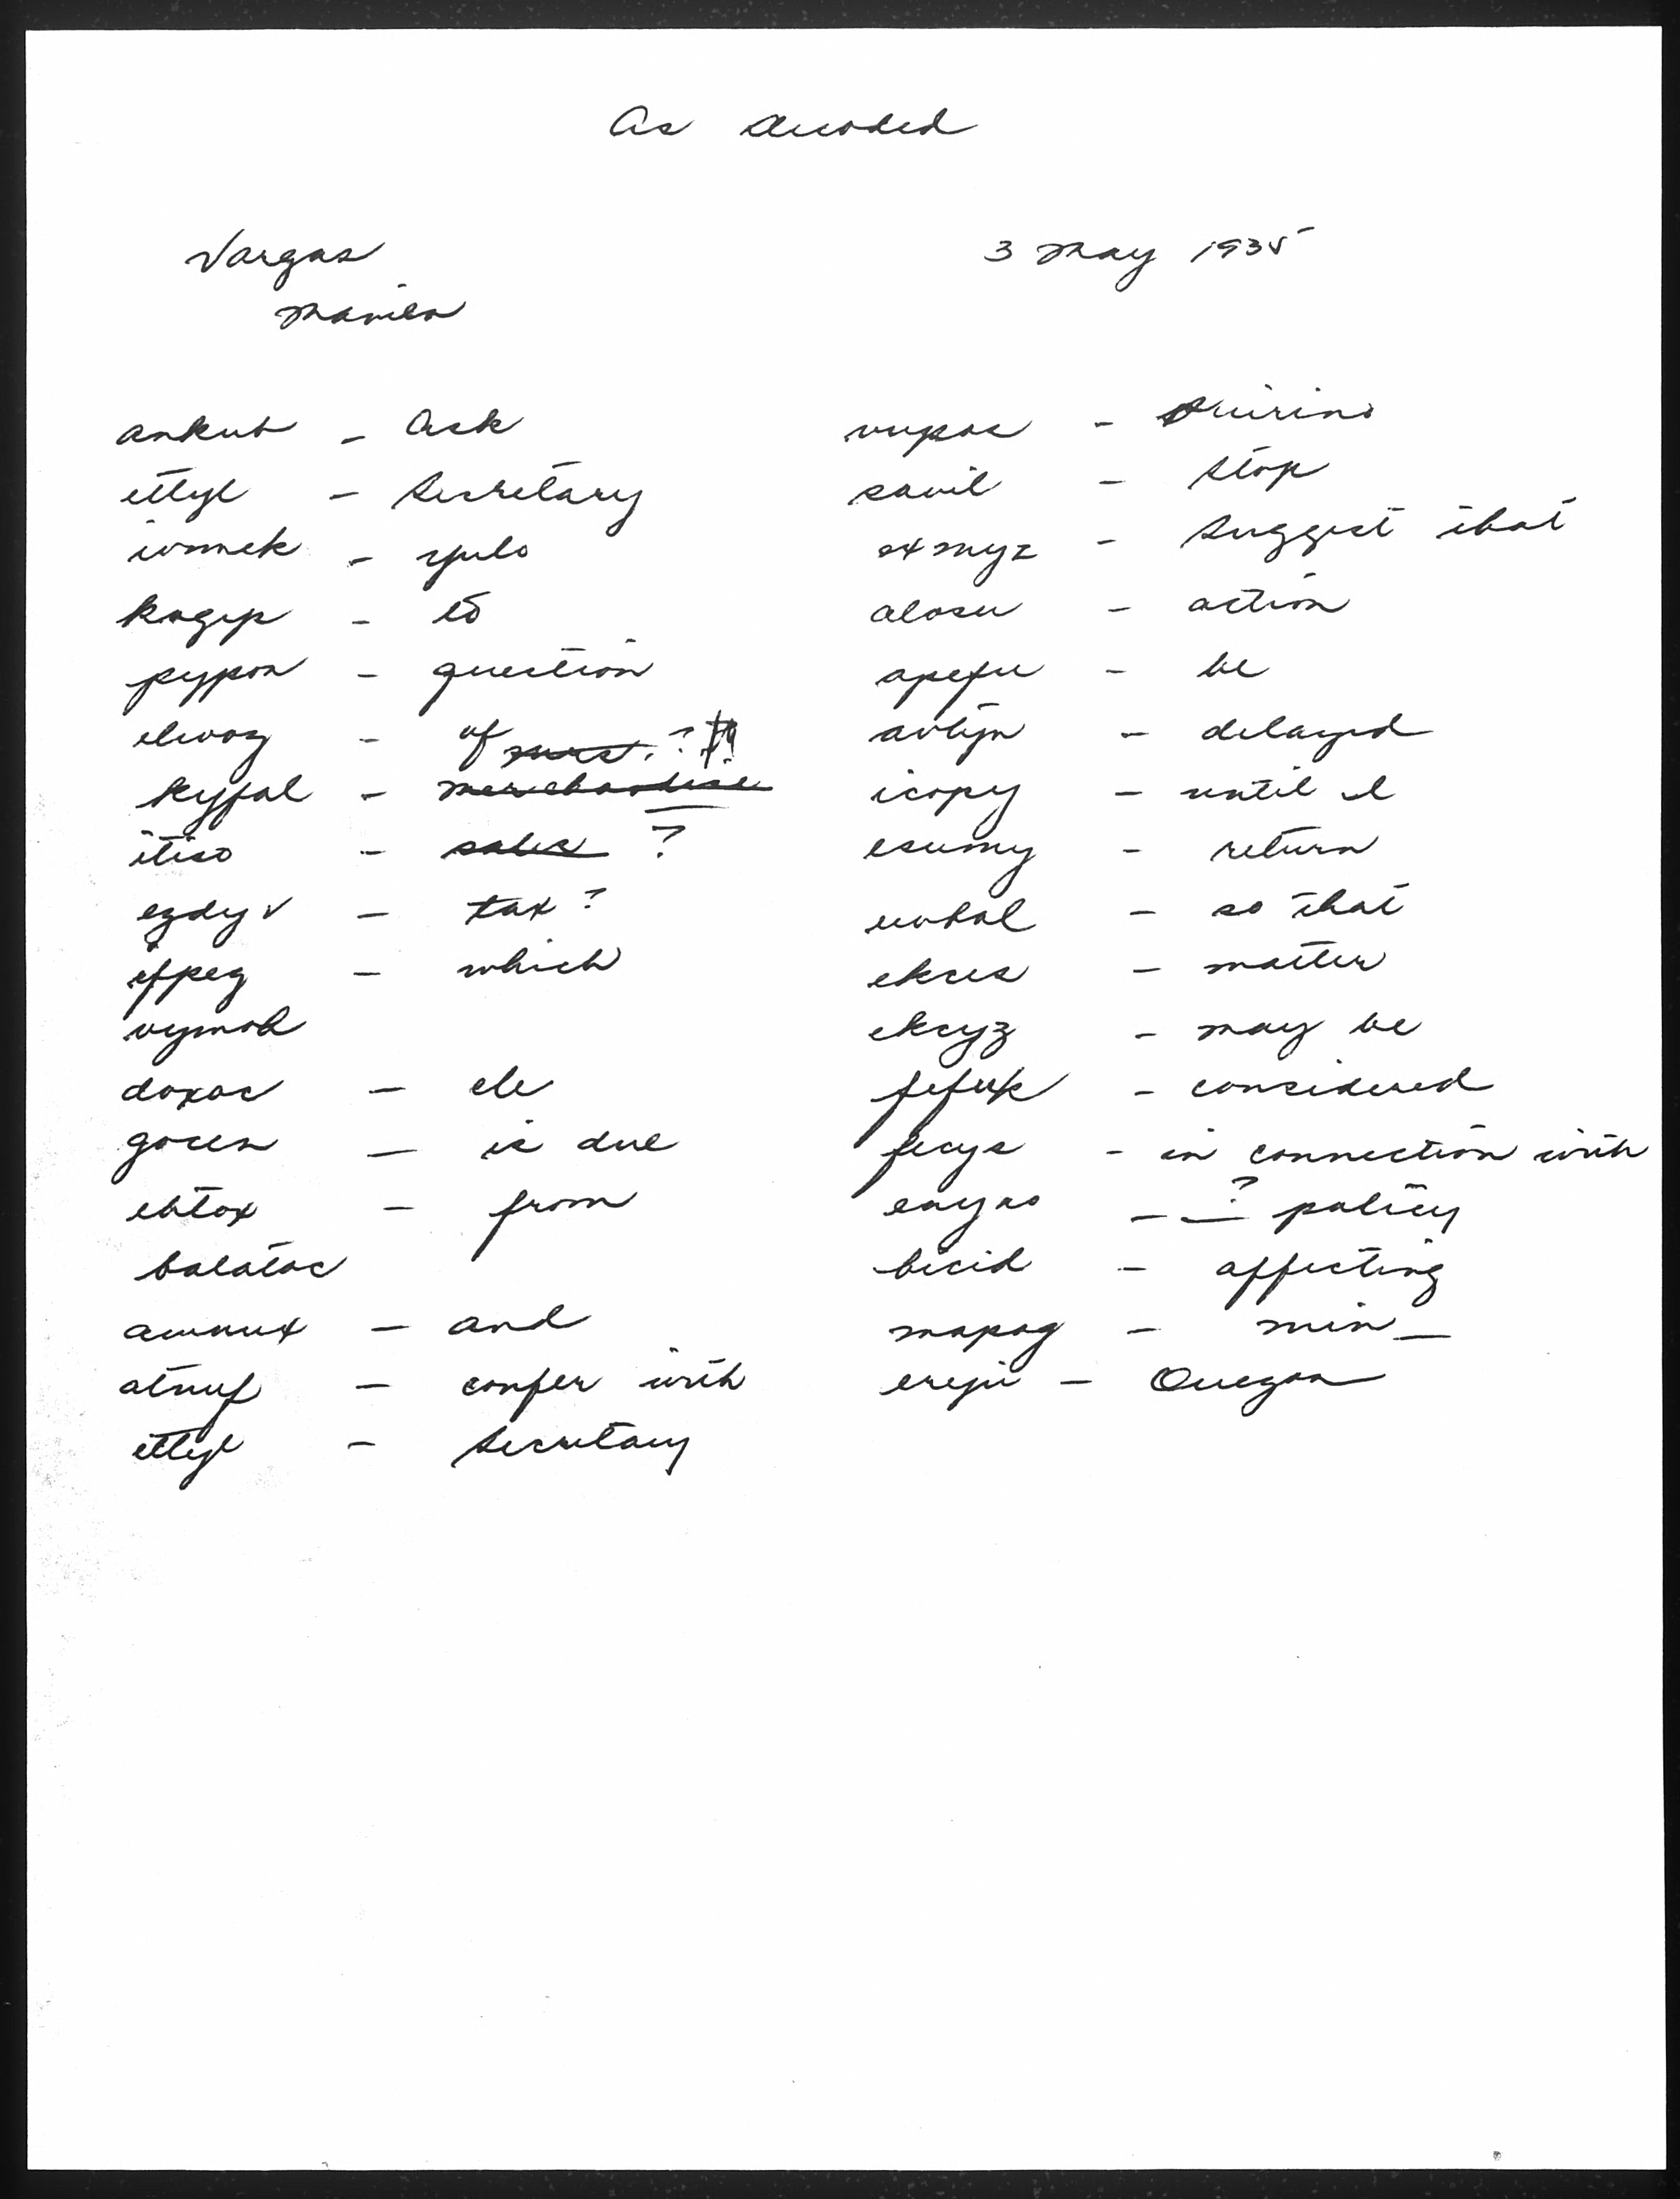 As decoded
Vargas 3 May 1935
Manila
ankub - Ask
ettyl - Secretary
ivnmek - Yulo
kogip - to
pypon - question
elwog - of
kyfal - merchandise
itiso - sales ?
egdyv - tax ?
efpeg - which
vymob
doxoc - ele
gocen - is due
ebtox - from
balatac
awnux - and
atnuf - confer with
ettyl - Secretary
vupac - Quirino
savil - Stop
oxmyz - Suggest that
alosu - action
apefu - be
avbyn - delayed
icopy - until I
esumy - return
uvbal - so that
ekces - matter
ekcyz - may be
fefuk - considered
fecys - in connection with
enyao - ? policy
bicid - affecting
mapag - min
ereju - Quezon